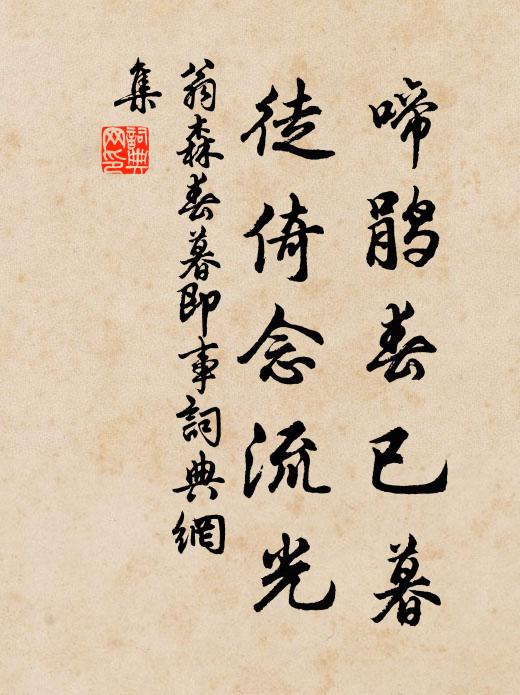 啼鹃春已暮
徒倚念流光
翁森春暮即事詞典網
集
詞典
网印